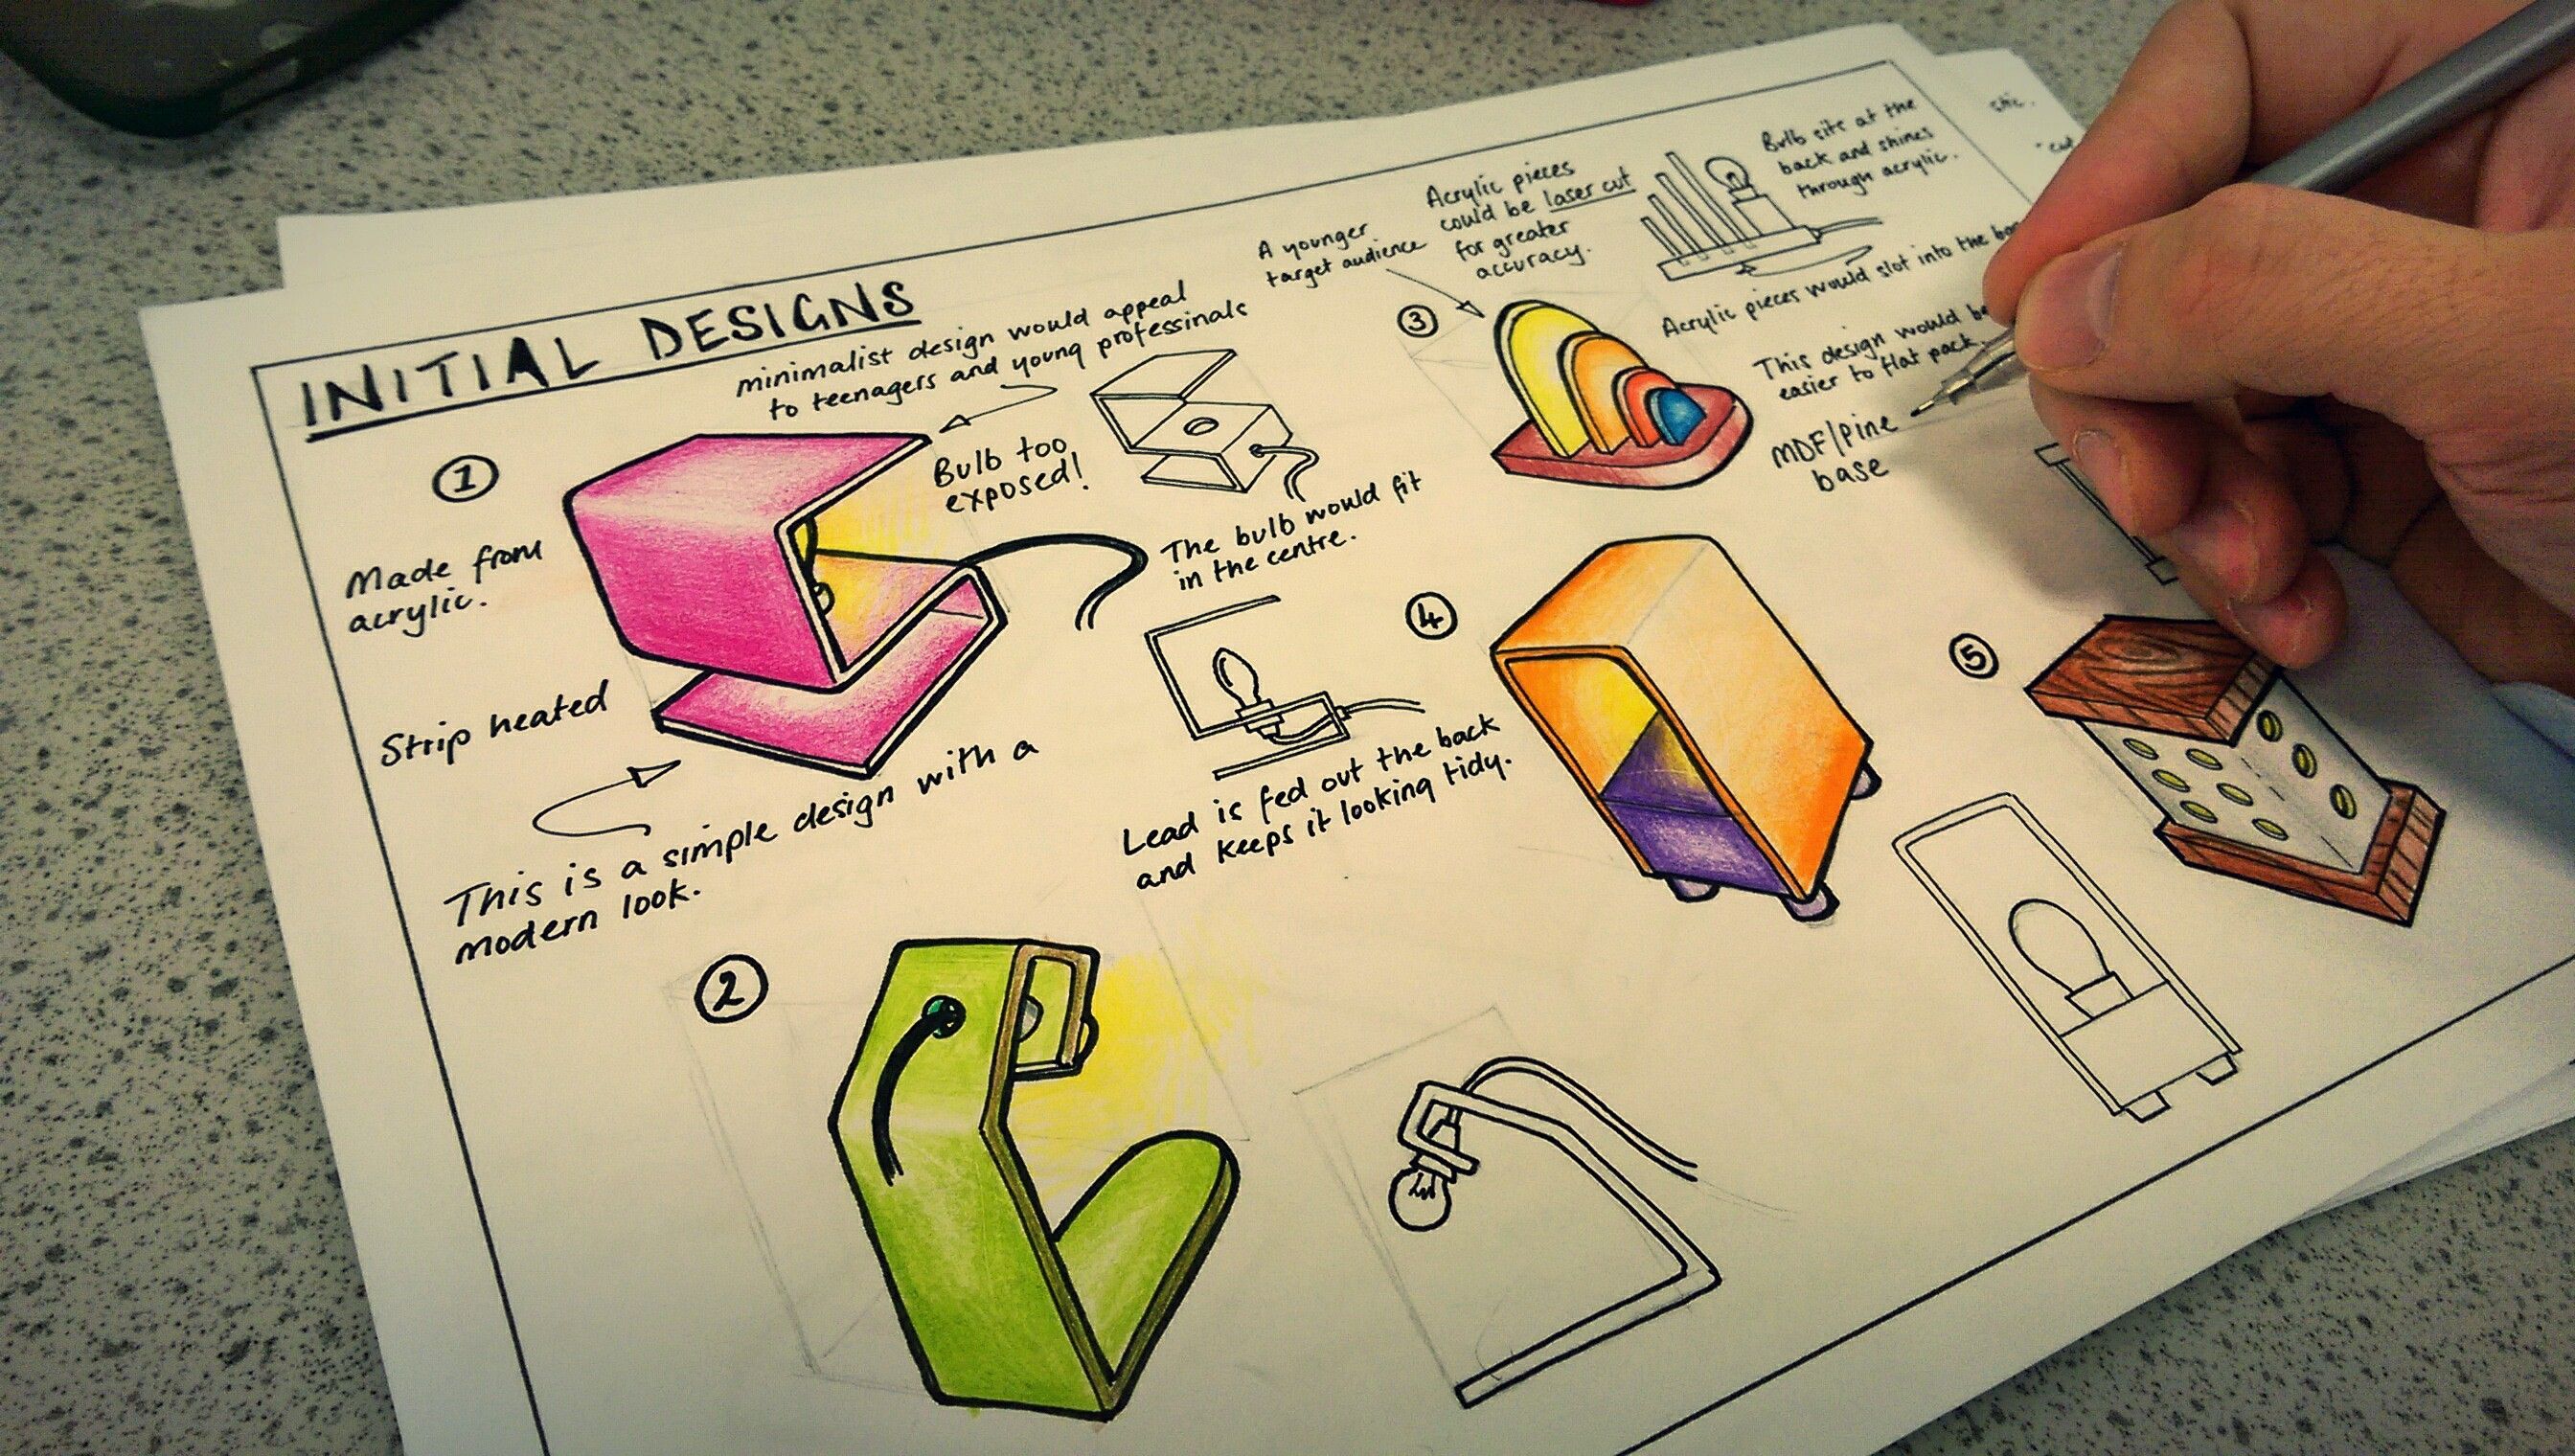 INITIAL DESIGNS
1
minimalist design would appeal
to teenagers and young professinals
Bulb too
exposed!
Made from
acrylic.
Strip heated
This is a simple design with a
modern look.
The bulb would fit
in the centre.
Lead is fed out the back
and keeps it looking tidy.
2
A younger
target audience
Acrylic pieces
could be laser cut
for greater
accuracy.
Bulb sits at the
back and shines
through acrylic.
3
Acrylic pieces would slot into the
This design would be
easier to flat pack.
MDF/pine
base
4
5